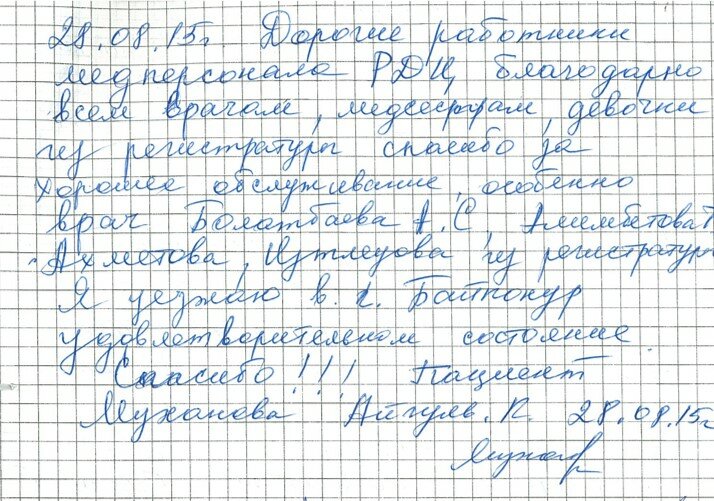 28.08.15г. Дорогие работники
медперсонала РДЦ благодарно
всем врачам, медсестрам, девочки
из регистратуры спасибо за
хорошее обслуживание, особенно
врач Болатбаева А.С, Алимбетова Т
Ахметова, Изтлеуова из регистратуры
Я уезжаю в г. Байконур
удовлетворительном состояние
Спасибо!!! Пациент
Муханова Айгуль. К. 28.08.15г